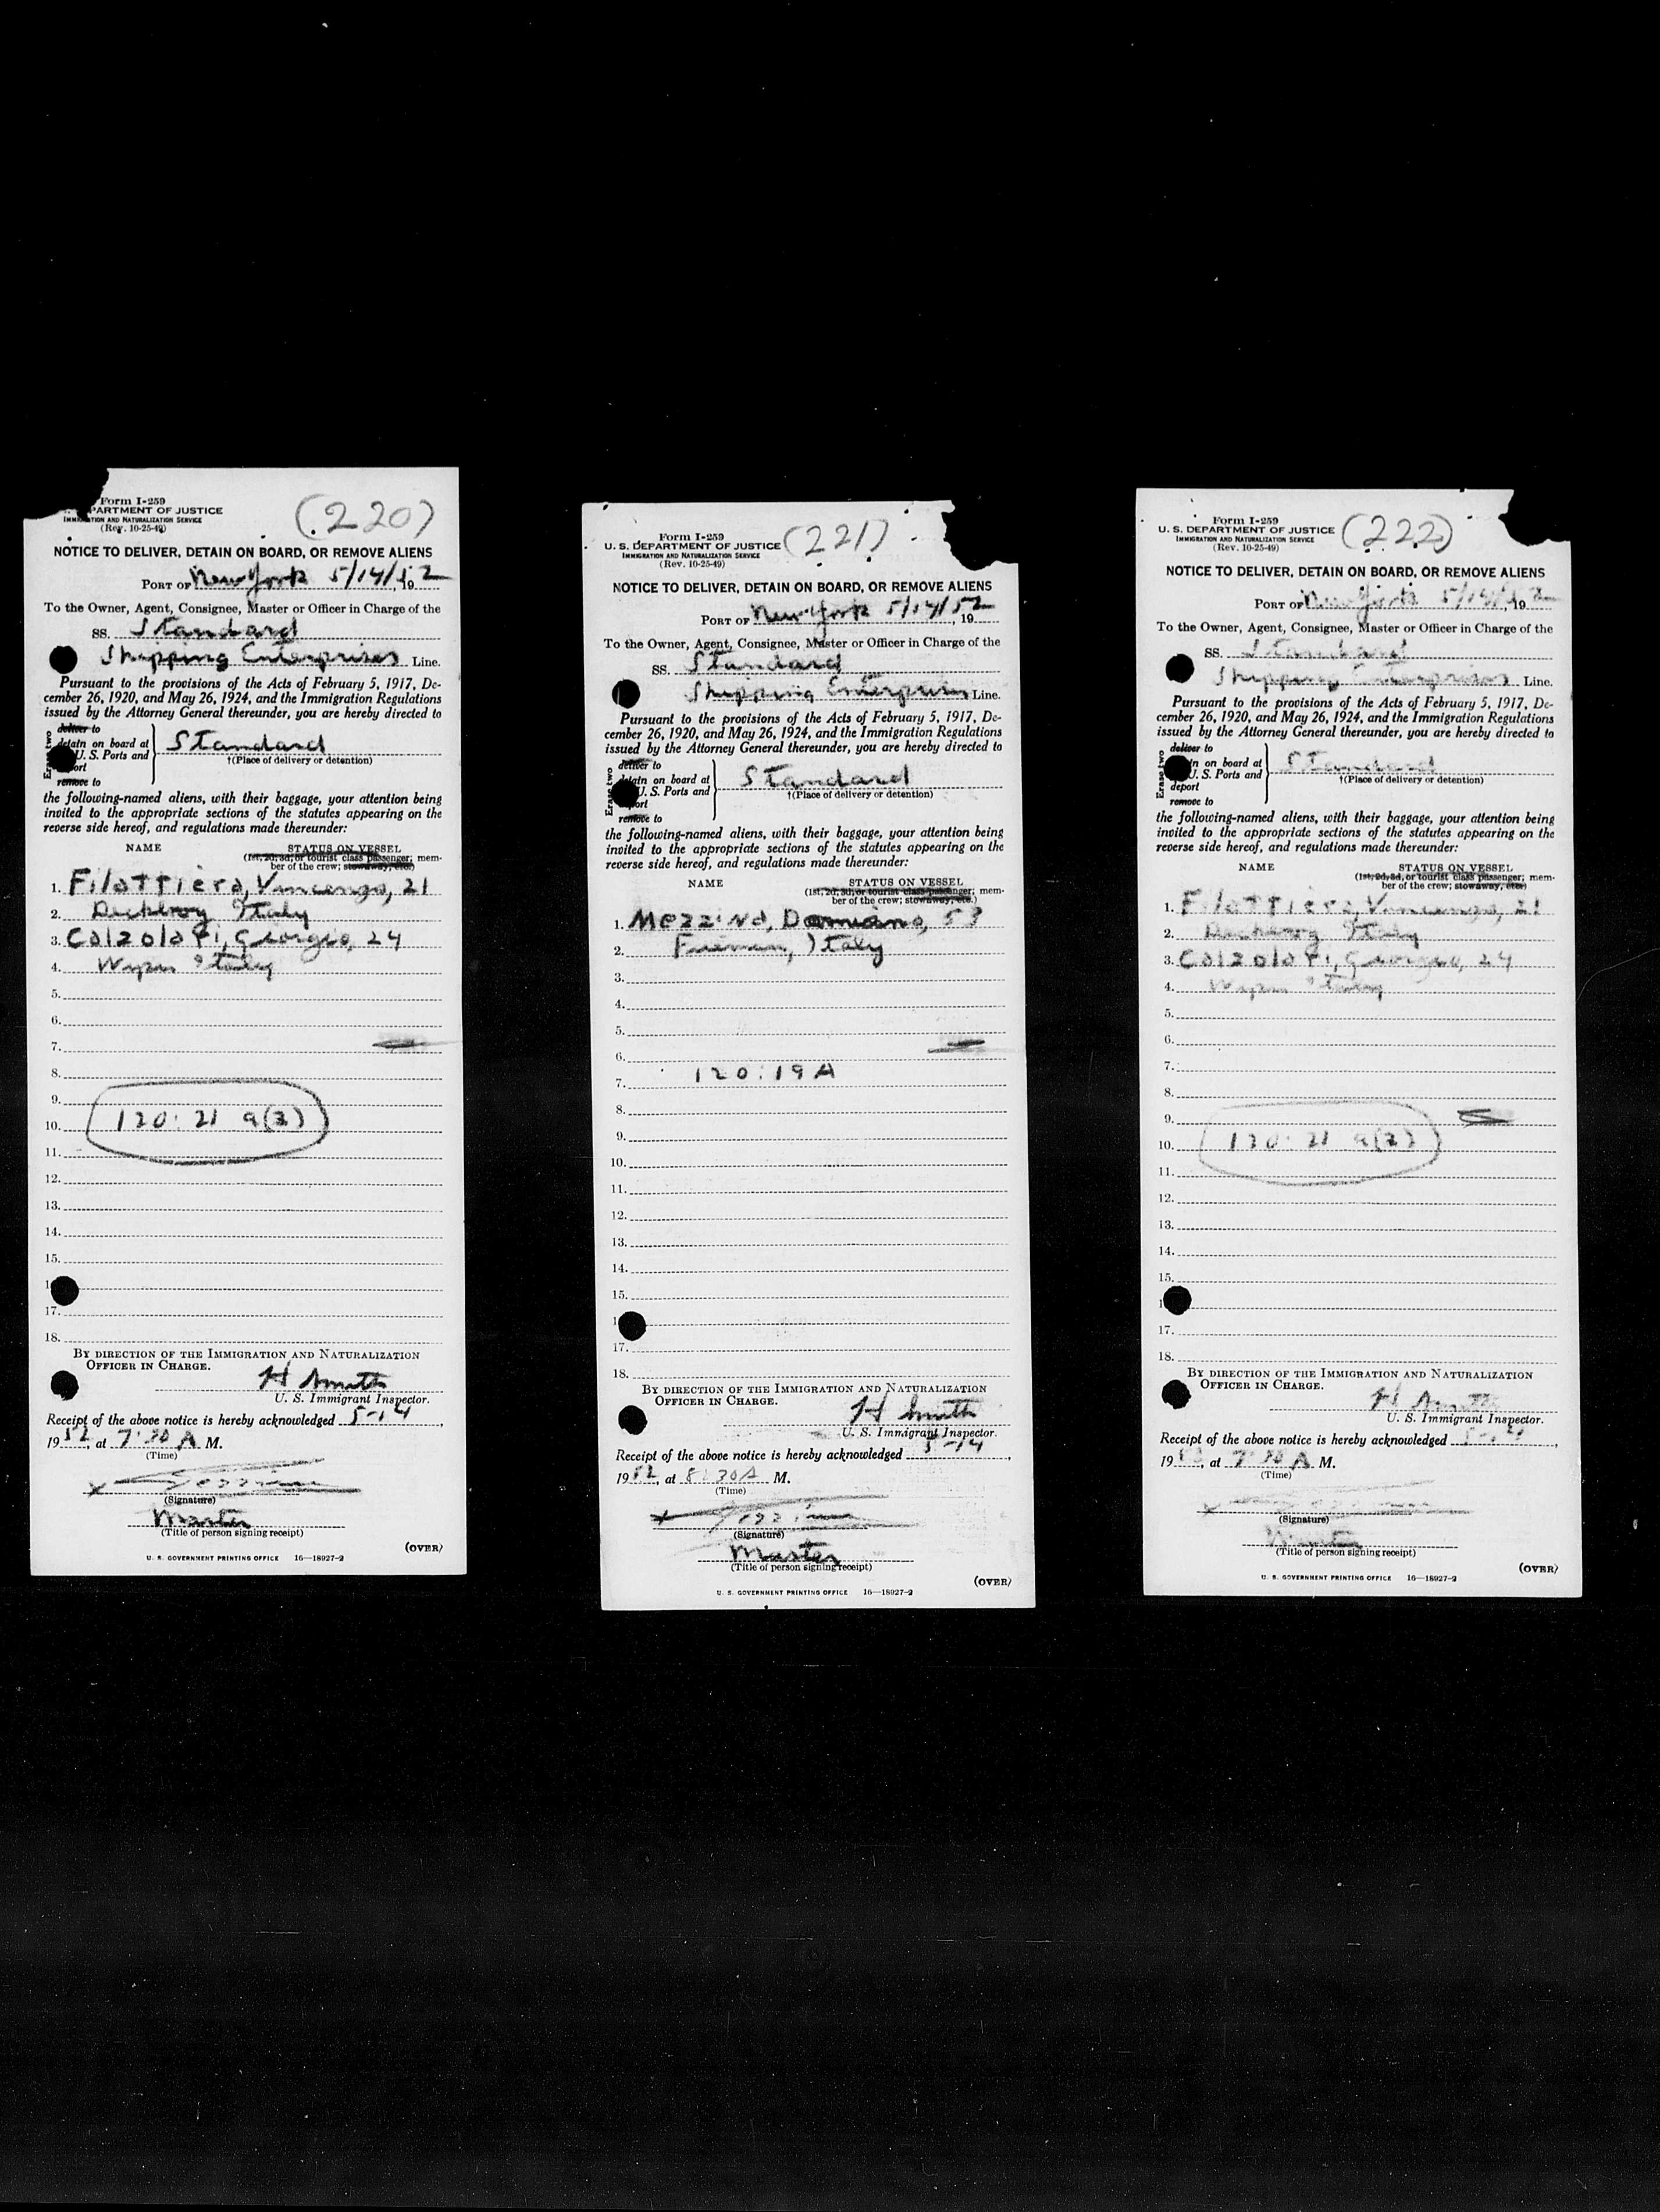 Form I-259
PARTMENT OF JUSTICE
IMMIGRATION AND NATURALIZATION SERVICE
(Rev. 10-25-49)
(220)
NOTICE TO DELIVER, DETAIN ON BOARD, OR REMOVE ALIENS
PORT OF New York 5/14/, 1952
To the Owner, Agent, Consignee, Master or Officer in Charge of the
SS. Standard
Shipping Enterprises Line.
Pursuant to the provisions of the Acts of February 5, 1917, De-
cember 26, 1920, and May 26, 1924, and the Immigration Regulations
issued by the Attorney General thereunder, you are hereby directed to
Erase two
deliver to
detain on board at
U. S. Ports and
ort
remove to
Standard
†(Place of delivery or detention)
the following-named aliens, with their baggage, your attention being
invited to the appropriate sections of the statutes appearing on the
reverse side hereof, and regulations made thereunder:
NAME STATUS ON VESSEL
(1st, 2d, 3d, or tourist class passenger; mem-
ber of the crew; stowaway, etc.)
1. Filottiero, Vincenzo, 21
2. Deckboy Italy
3. Calzolari, Georgio, 24
4. Wiper Italy
5.
6.
7.
8.
9.
10. 120:21 a(2)
11.
12.
13.
14.
15.
1
17.
18.
BY DIRECTION OF THE IMMIGRATION AND NATURALIZATION
OFFICER IN CHARGE.
H Smith
U. S. Immigrant Inspector.
Receipt of the above notice is hereby acknowledged 5-14,
1952, at 7:30 A M.
(Time)
x
(Signature)
Master
(Title of person signing receipt)
(OVER)
U. S. GOVERNMENT PRINTING OFFICE 16—18927-2
Form I-259
U. S. DEPARTMENT OF JUSTICE
IMMIGRATION AND NATURALIZATION SERVICE
(Rev. 10-25-49)
(221)
NOTICE TO DELIVER, DETAIN ON BOARD, OR REMOVE ALIENS
PORT OF New York 5/14/52, 19
To the Owner, Agent, Consignee, Master or Officer in Charge of the
SS. Standard
Shipping Enterprises Line.
Pursuant to the provisions of the Acts of February 5, 1917, De-
cember 26, 1920, and May 26, 1924, and the Immigration Regulations
issued by the Attorney General thereunder, you are hereby directed to
Erase two
deliver to
detain on board at
U. S. Ports and
port
remove to
Standard
†(Place of delivery or detention)
the following-named aliens, with their baggage, your attention being
invited to the appropriate sections of the statutes appearing on the
reverse side hereof, and regulations made thereunder:
NAME STATUS ON VESSEL
(1st, 2d, 3d, or tourist class passenger; mem-
ber of the crew; stowaway, etc.)
1. Mezzino, Damiano, 53
2. Fireman, Italy
3.
4.
5.
6.
7. 120:19A
8.
9.
10.
11.
12.
13.
14.
15.
1
17.
18.
BY DIRECTION OF THE IMMIGRATION AND NATURALIZATION
OFFICER IN CHARGE.
H Smith
U. S. Immigrant Inspector.
Receipt of the above notice is hereby acknowledged 5-14,
1952, at 8:30A M.
(Time)
x
(Signature)
Master
(Title of person signing receipt)
(OVER)
U. S. GOVERNMENT PRINTING OFFICE 16—18927-2
Form I-259
U. S. DEPARTMENT OF JUSTICE
IMMIGRATION AND NATURALIZATION SERVICE
(Rev. 10-25-49)
(222)
NOTICE TO DELIVER, DETAIN ON BOARD, OR REMOVE ALIENS
PORT OF New York 5/14/, 1952
To the Owner, Agent, Consignee, Master or Officer in Charge of the
SS. Standard
Shipping Enterprises Line.
Pursuant to the provisions of the Acts of February 5, 1917, De-
cember 26, 1920, and May 26, 1924, and the Immigration Regulations
issued by the Attorney General thereunder, you are hereby directed to
Erase two
deliver to
in on board at
U. S. Ports and
deport
remove to
Standard
†(Place of delivery or detention)
the following-named aliens, with their baggage, your attention being
invited to the appropriate sections of the statutes appearing on the
reverse side hereof, and regulations made thereunder:
NAME STATUS ON VESSEL
(1st, 2d, 3d, or tourist class passenger; mem-
ber of the crew; stowaway, etc.)
1. Filottiero, Vincenzo, 21
2. Deckboy Italy
3. Calzolari, Georgio, 24
4. Wiper Italy
5.
6.
7.
8.
9.
10. 120:21 a(2)
11.
12.
13.
14.
15.
1
17.
18.
BY DIRECTION OF THE IMMIGRATION AND NATURALIZATION
OFFICER IN CHARGE.
H Smith
U. S. Immigrant Inspector.
Receipt of the above notice is hereby acknowledged 5-14,
1952, at 7:30 A M.
(Time)
x
(Signature)
Master
(Title of person signing receipt)
(OVER)
U. S. GOVERNMENT PRINTING OFFICE 16—18927-2